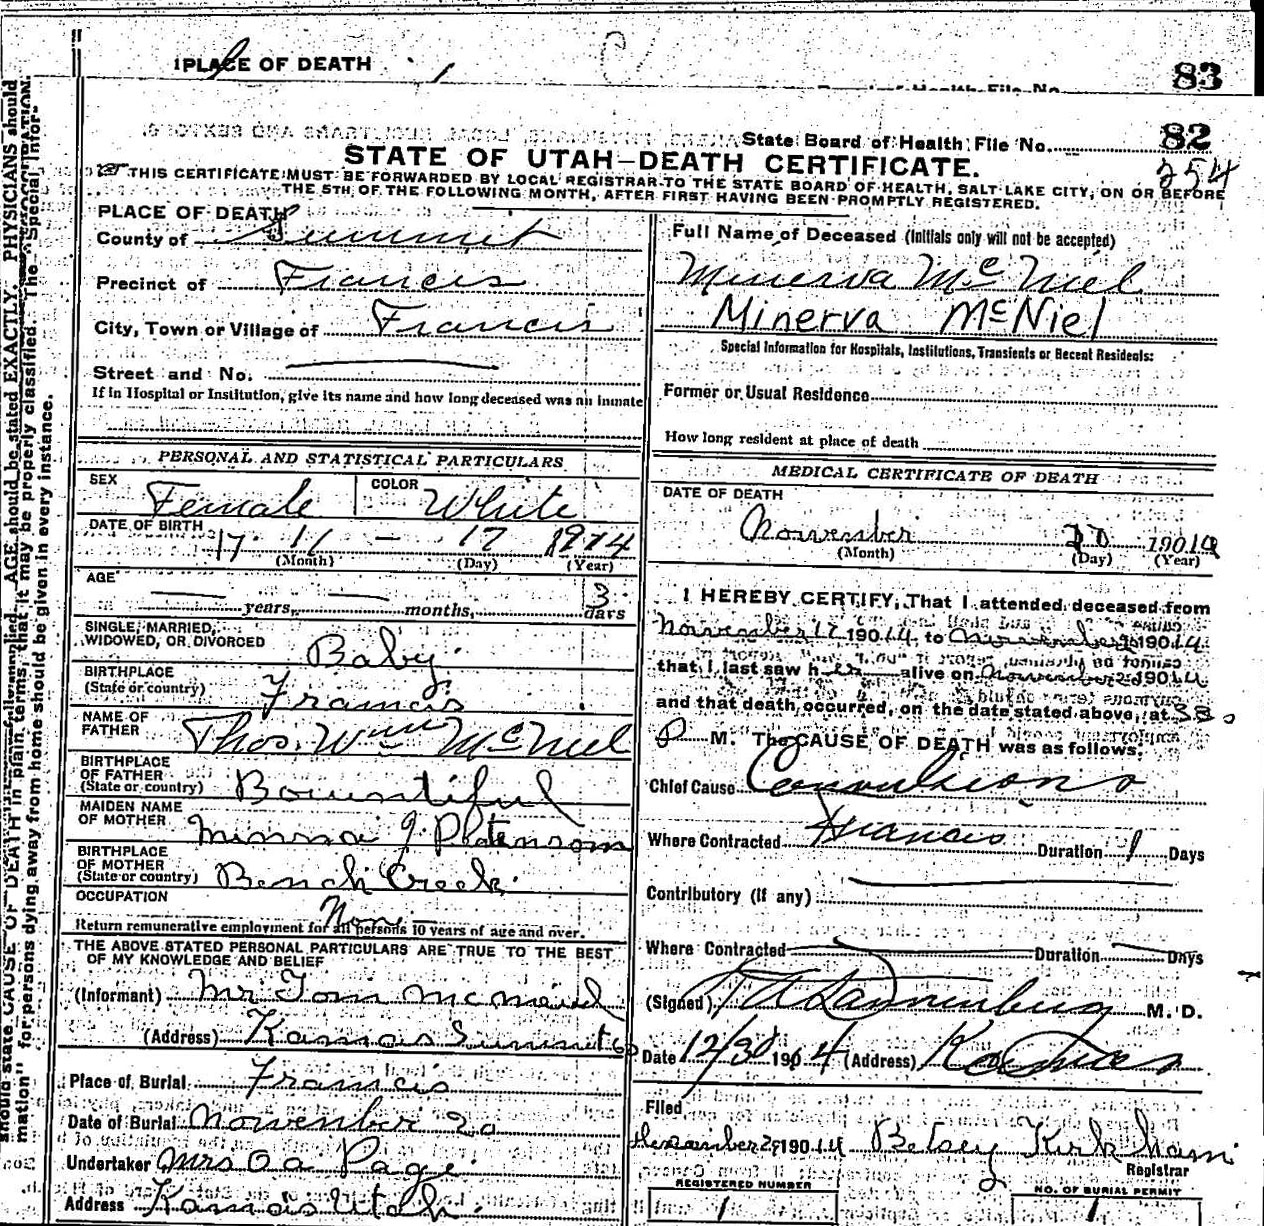 PLACE OF DEATH
83
State Board of Health File No. 82
254
STATE OF UTAH—DEATH CERTIFICATE.
THIS CERTIFICATE MUST BE FORWARDED BY LOCAL REGISTRAR TO THE STATE BOARD OF HEALTH, SALT LAKE CITY, ON OR BEFORE
THE 5TH OF THE FOLLOWING MONTH, AFTER FIRST HAVING BEEN PROMPTLY REGISTERED.
PLACE OF DEATH
County of Summit
Precinct of Francis
City, Town or Village of Francis
Street and No.
If in Hospital or Institution, give its name and how long deceased was an inmate
PERSONAL AND STATISTICAL PARTICULARS
SEX Female COLOR White
DATE OF BIRTH 17 11 — 17
(Month) (Day) (Year)
AGE
years, months, 3 days
SINGLE, MARRIED,
WIDOWED, OR DIVORCED Baby
BIRTHPLACE
(State or country) Francis
NAME OF
FATHER Thos. Wm McNiel
BIRTHPLACE
OF FATHER
(State or country) Bountiful
MAIDEN NAME
OF MOTHER J.
BIRTHPLACE
OF MOTHER
(State or country) Bench Creek
OCCUPATION
None
Return remunerative employment for all persons 10 years of age and over.
THE ABOVE STATED PERSONAL PARTICULARS ARE TRUE TO THE BEST
OF MY KNOWLEDGE AND BELIEF
(Informant) Mr Tom McNeil
(Address) Kamas Summit Co
Place of Burial Francis
Date of Burial November 20
Undertaker Mrs Page
Address Kamas Utah.
Full Name of Deceased (Initials only will not be accepted)
Minerva McNiel
Minerva McNiel
Special Information for Hospitals, Institutions, Transients or Recent Residents:
Former or Usual Residence
How long resident at place of death
MEDICAL CERTIFICATE OF DEATH
DATE OF DEATH
November 20 190
(Month) (Day) (Year)
I HEREBY CERTIFY, That I attended deceased from
November 17 19014 to November 19014
that I last saw her alive on November 19014
and that death occurred, on the date stated above, at 330
P M. The CAUSE OF DEATH was as follows:
Chief Cause Convulsions
Where Contracted Francis Duration 1 Days
Contributory (If any)
Where Contracted Duration Days
(Signed) M. D.
Date 12/30 1904 (Address) Kamas
Filed
December 29 19014 Betsey Kirkham
Registrar
REGISTERED NUMBER
1
NO. OF BURIAL PERMIT
1
AGE should be stated EXACTLY. PHYSICIANS should
should state CAUSE OF DEATH in plain terms, that it may be properly classified. The "Special Infor-
mation" for persons dying away from home should be given in every instance.